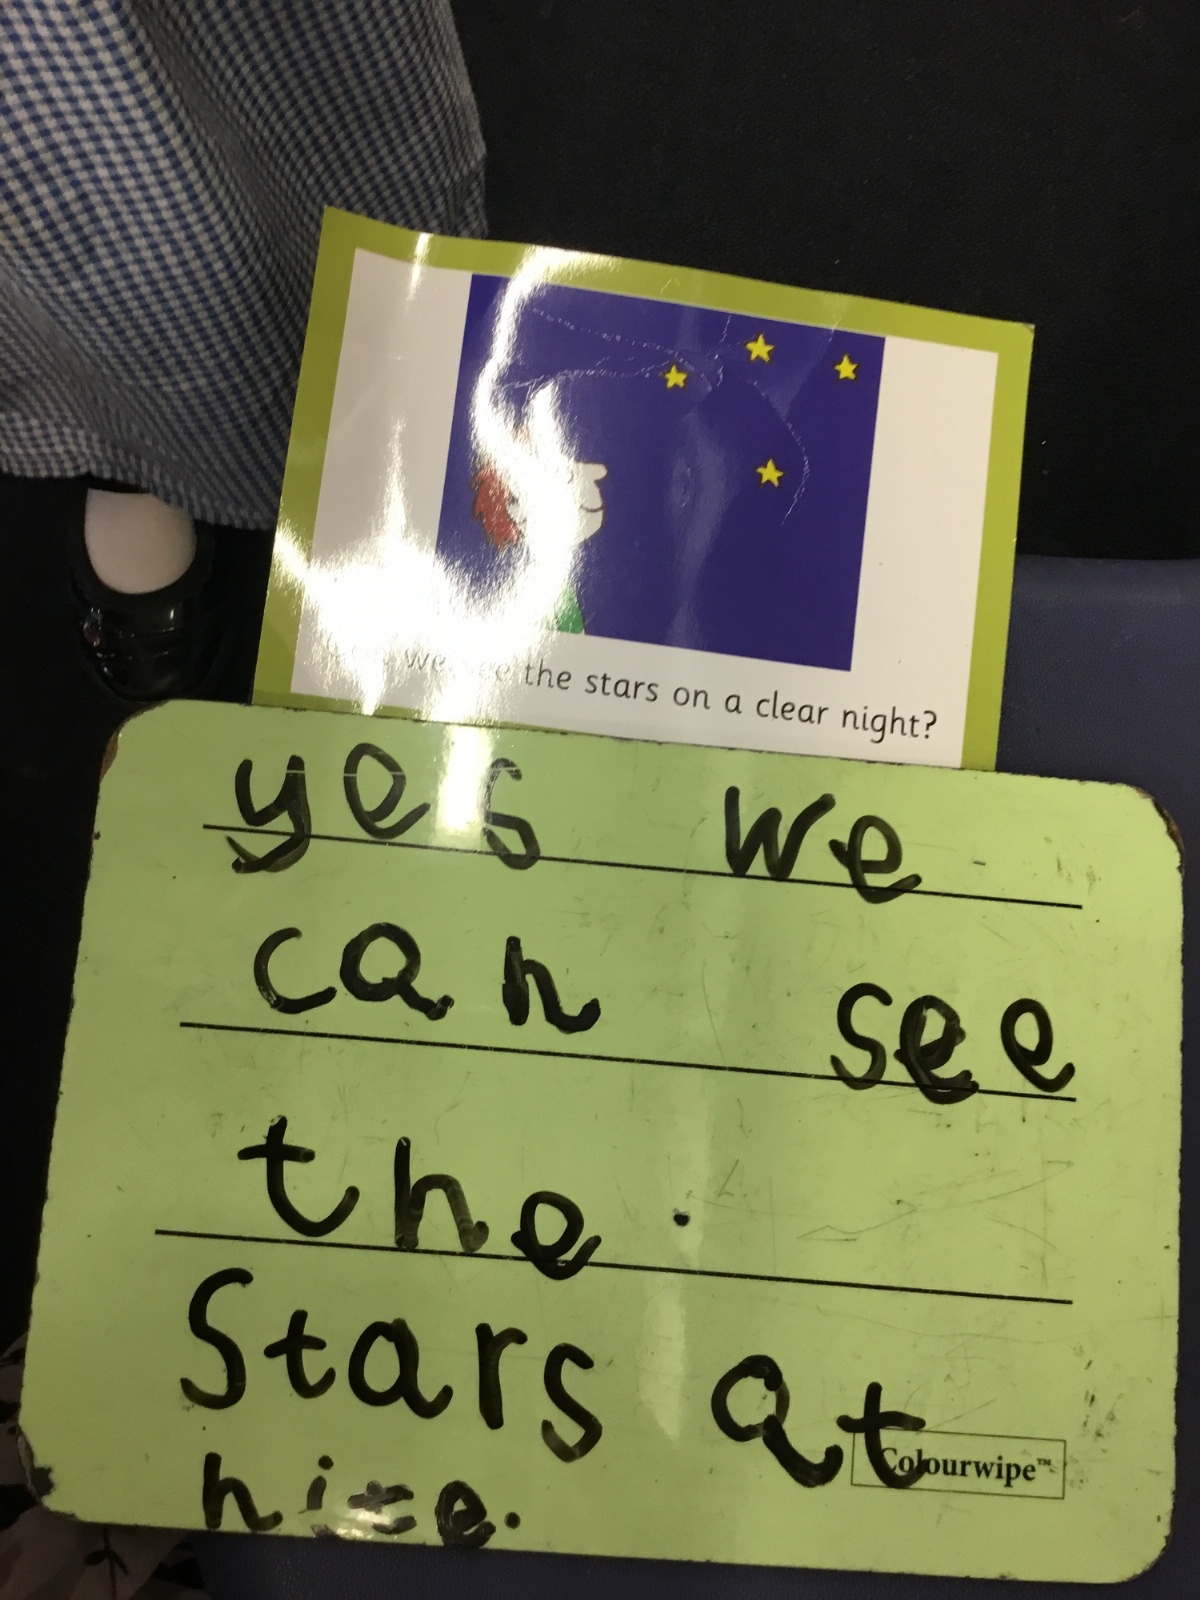 we see the stars on a clear night?
yes we
can see
the.
Stars at
Colourwipe™
nite.